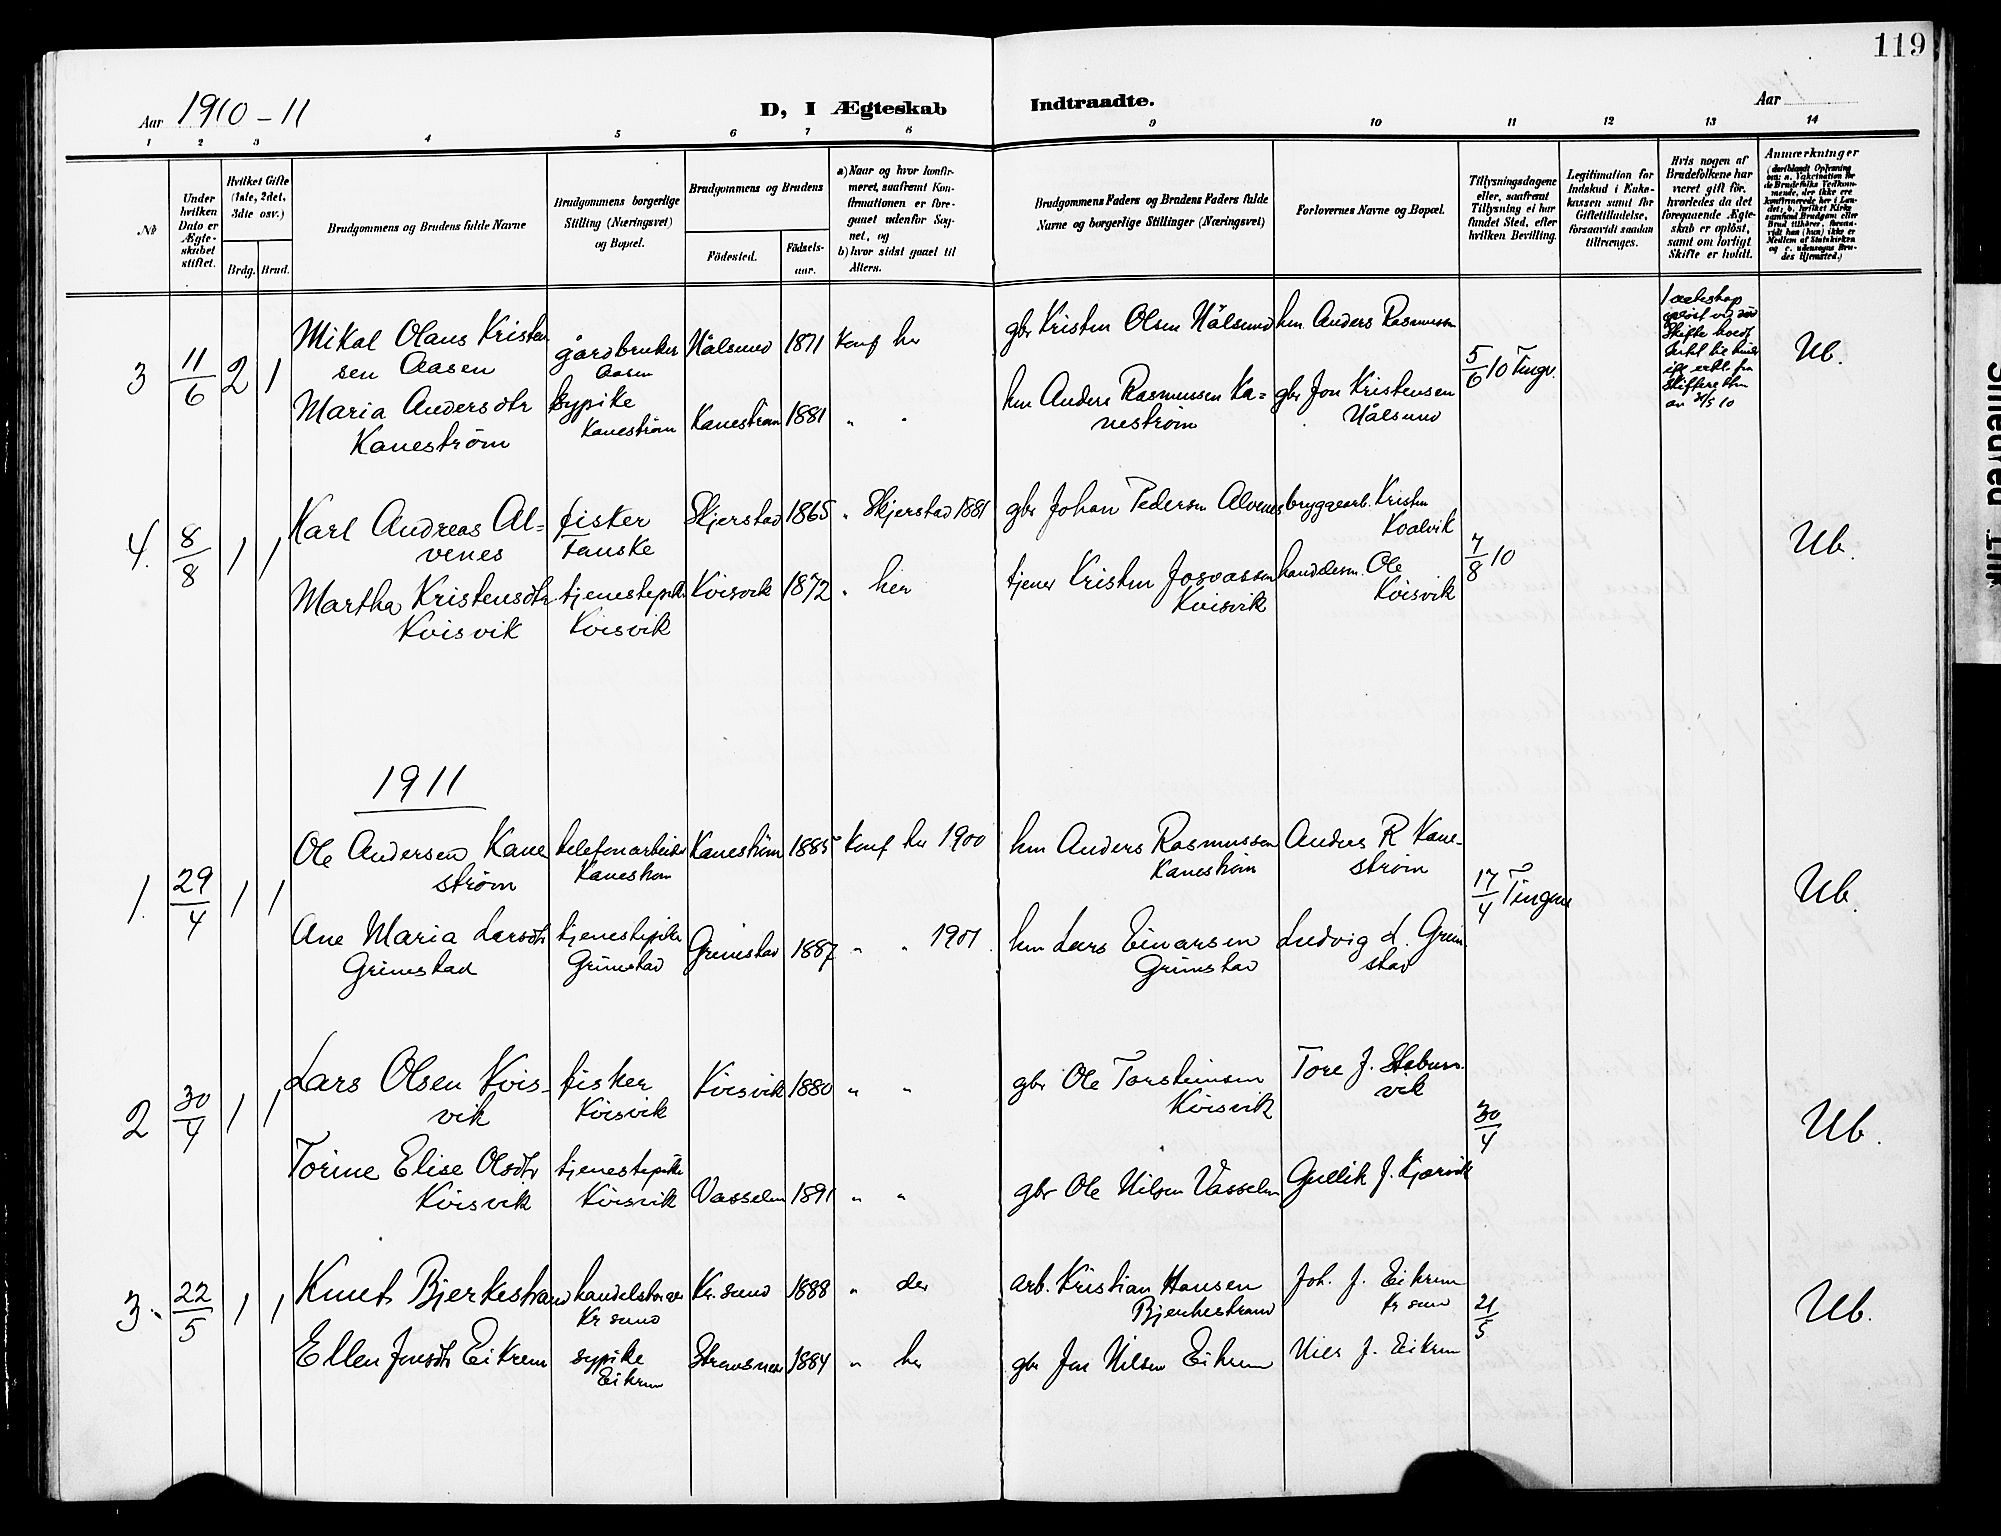 119
Aar 1910-11
D, I Ægteskab Indtraadte.
Aar
1 2 3 4 5 6 7 8 9 10 11 12 13 14
No
Under hvilken Dato er Ægteskabet stiftet.
Hvilket Gifte (1ste, 2det, 3dte osv.)
Brdg. Brud.
Brudgommens og Brudens fulde Navne
Brudgommens borgerlige Stilling (Næringsvei) og Bopæl.
Brudgommens og Brudens
Fødested.
Fødselsaar.
a) Naar og hvor konfirmeret, saafremt Konfirmationen er foregaaet udenfor Sognet, og
b) hvor sidst gaaet til Alters.
Brudgommens Faders og Brudens Faders fulde Navne og borgerlige Stillinger (Næringsvei)
Forlovernes Navne og Bopæl.
Tillysningsdagene eller, saafremt Tillysning ei har fundet Sted, efter hvilken Bevilling.
Legitimation for Indskud i Enkekassen samt for Giftetilladelse, forsaavidt saadan tiltrænges.
Hvis nogen af Brudefolkene har været gift før, hvorledes da det foregaaende Ægteskab er opløst, samt om lovligt Skifte er holdt.
Anmærkninger
3 11/6 2 1
Mikal Olaus Kristensen Aasen
gårdbruker Aasen
Nålsund 1871 Konf her
gbr Kristen Olsen Nålsund
hm. Anders Rasmussen
5/6 10 Tingv.
Ub.
Maria Andersdtr Kanestrøm
sypike Kanestrøm
Kanestrøm 1881 " "
hm Anders Rasmussen Kanestrøm
gbr Jon Kristensen Nålsund
4. 8/8 1 1
Karl Andreas Alvenes
fisker Fauske
Skjerstad 1865 " Skjerstad 1881
gbr Johan Pedersen Alvenes
bryggearb. Kristen Koalvik
7/8 10
Ub.
Martha Kristensdtr Kvisvik
tjenestepike Kvisvik
Kvisvik 1872 " her
tjener Kristen Josvassen Kvisvik
handelsm. Ole Kvisvik
1911
1. 29/4 1 1
Ole Andersen Kanestrøm
telefonarbeider Kanestrøm
Kanestrøm 1885 Konf her 1900
hm Anders Rasmussen Kanestrøm
Anders R Kanestrøm
17/4 Tingv
Ub.
Ane Maria Larsdtr Grimstad
tjenestepike Grimstad
Grimstad 1887 " " 1901
hm Lars Einarsen Grimstad
Ludvig L. Grimstad
2 30/4 1 1
Lars Olsen Kvisvik
fisker Kvisvik
Kvisvik 1880 " "
gbr Ole Torsteinsen Kvisvik
Tore J.
30/4
Ub.
Torine Elise Olsdtr Kvisvik
tjenestepike Kvisvik
Vasselen 1891 " "
gbr Ole Nilsen Vasselen
Gullik J.
3. 22/5 1 1
Knut Bjerkestrand
Kr sund
Kr. sund 1888 " der
arb. Kristian Hansen Bjerkestrand
Joh. J. Eikrem Kr sund
21/5
Ub.
Ellen Jonsdtr Eikrem
sypike Eikrem
Straumsnes 1884 " her
gbr Jon Nilsen Eikrem
Nils J. Eikrem